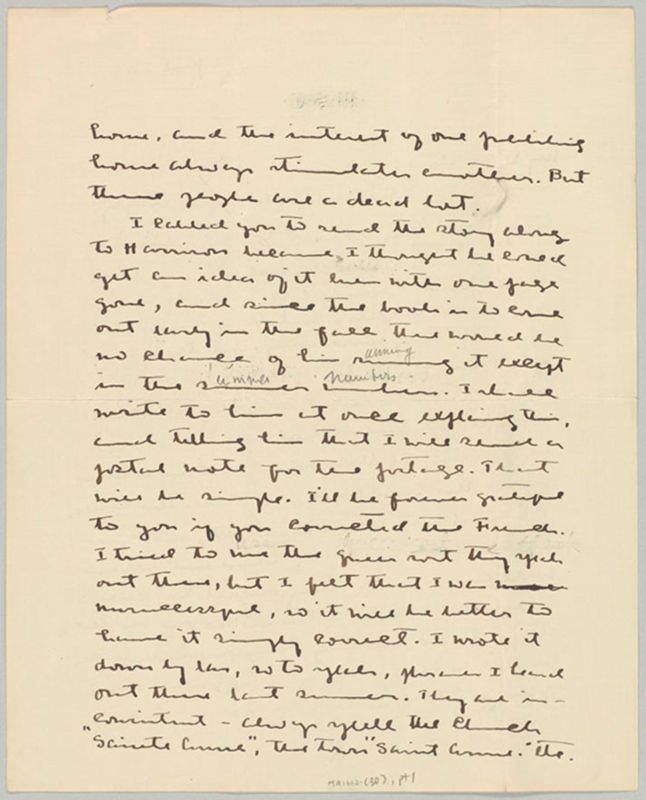 home, and the interest of one publishing
house always stimulates another. But
these people are a dead lot.
I cabled you to send the story along
to Harrison because I thought he could
get an idea of it even with one page
gone, and since the book is to come
out early in the fall there would be
no chance of his running it except
unning
in the summer numbers. I shall
ummer numbers
write to him at once explaining this,
and telling him that I will send a
postal note for the postage. That
will be simple. I'll be forever grateful
to you if you corrected the French.
I tried to use the queer sort they speak
out there, but I felt that I was
unsuccessful, so it will be better to
have it simply correct. I wrote it
down by ear, so to speak, phrases I heard
out there last summer. They are in-
consistent - always spell the Church
"Sainte Anne", the town "Saint Anne." etc.
MA1602 (38), pt 1